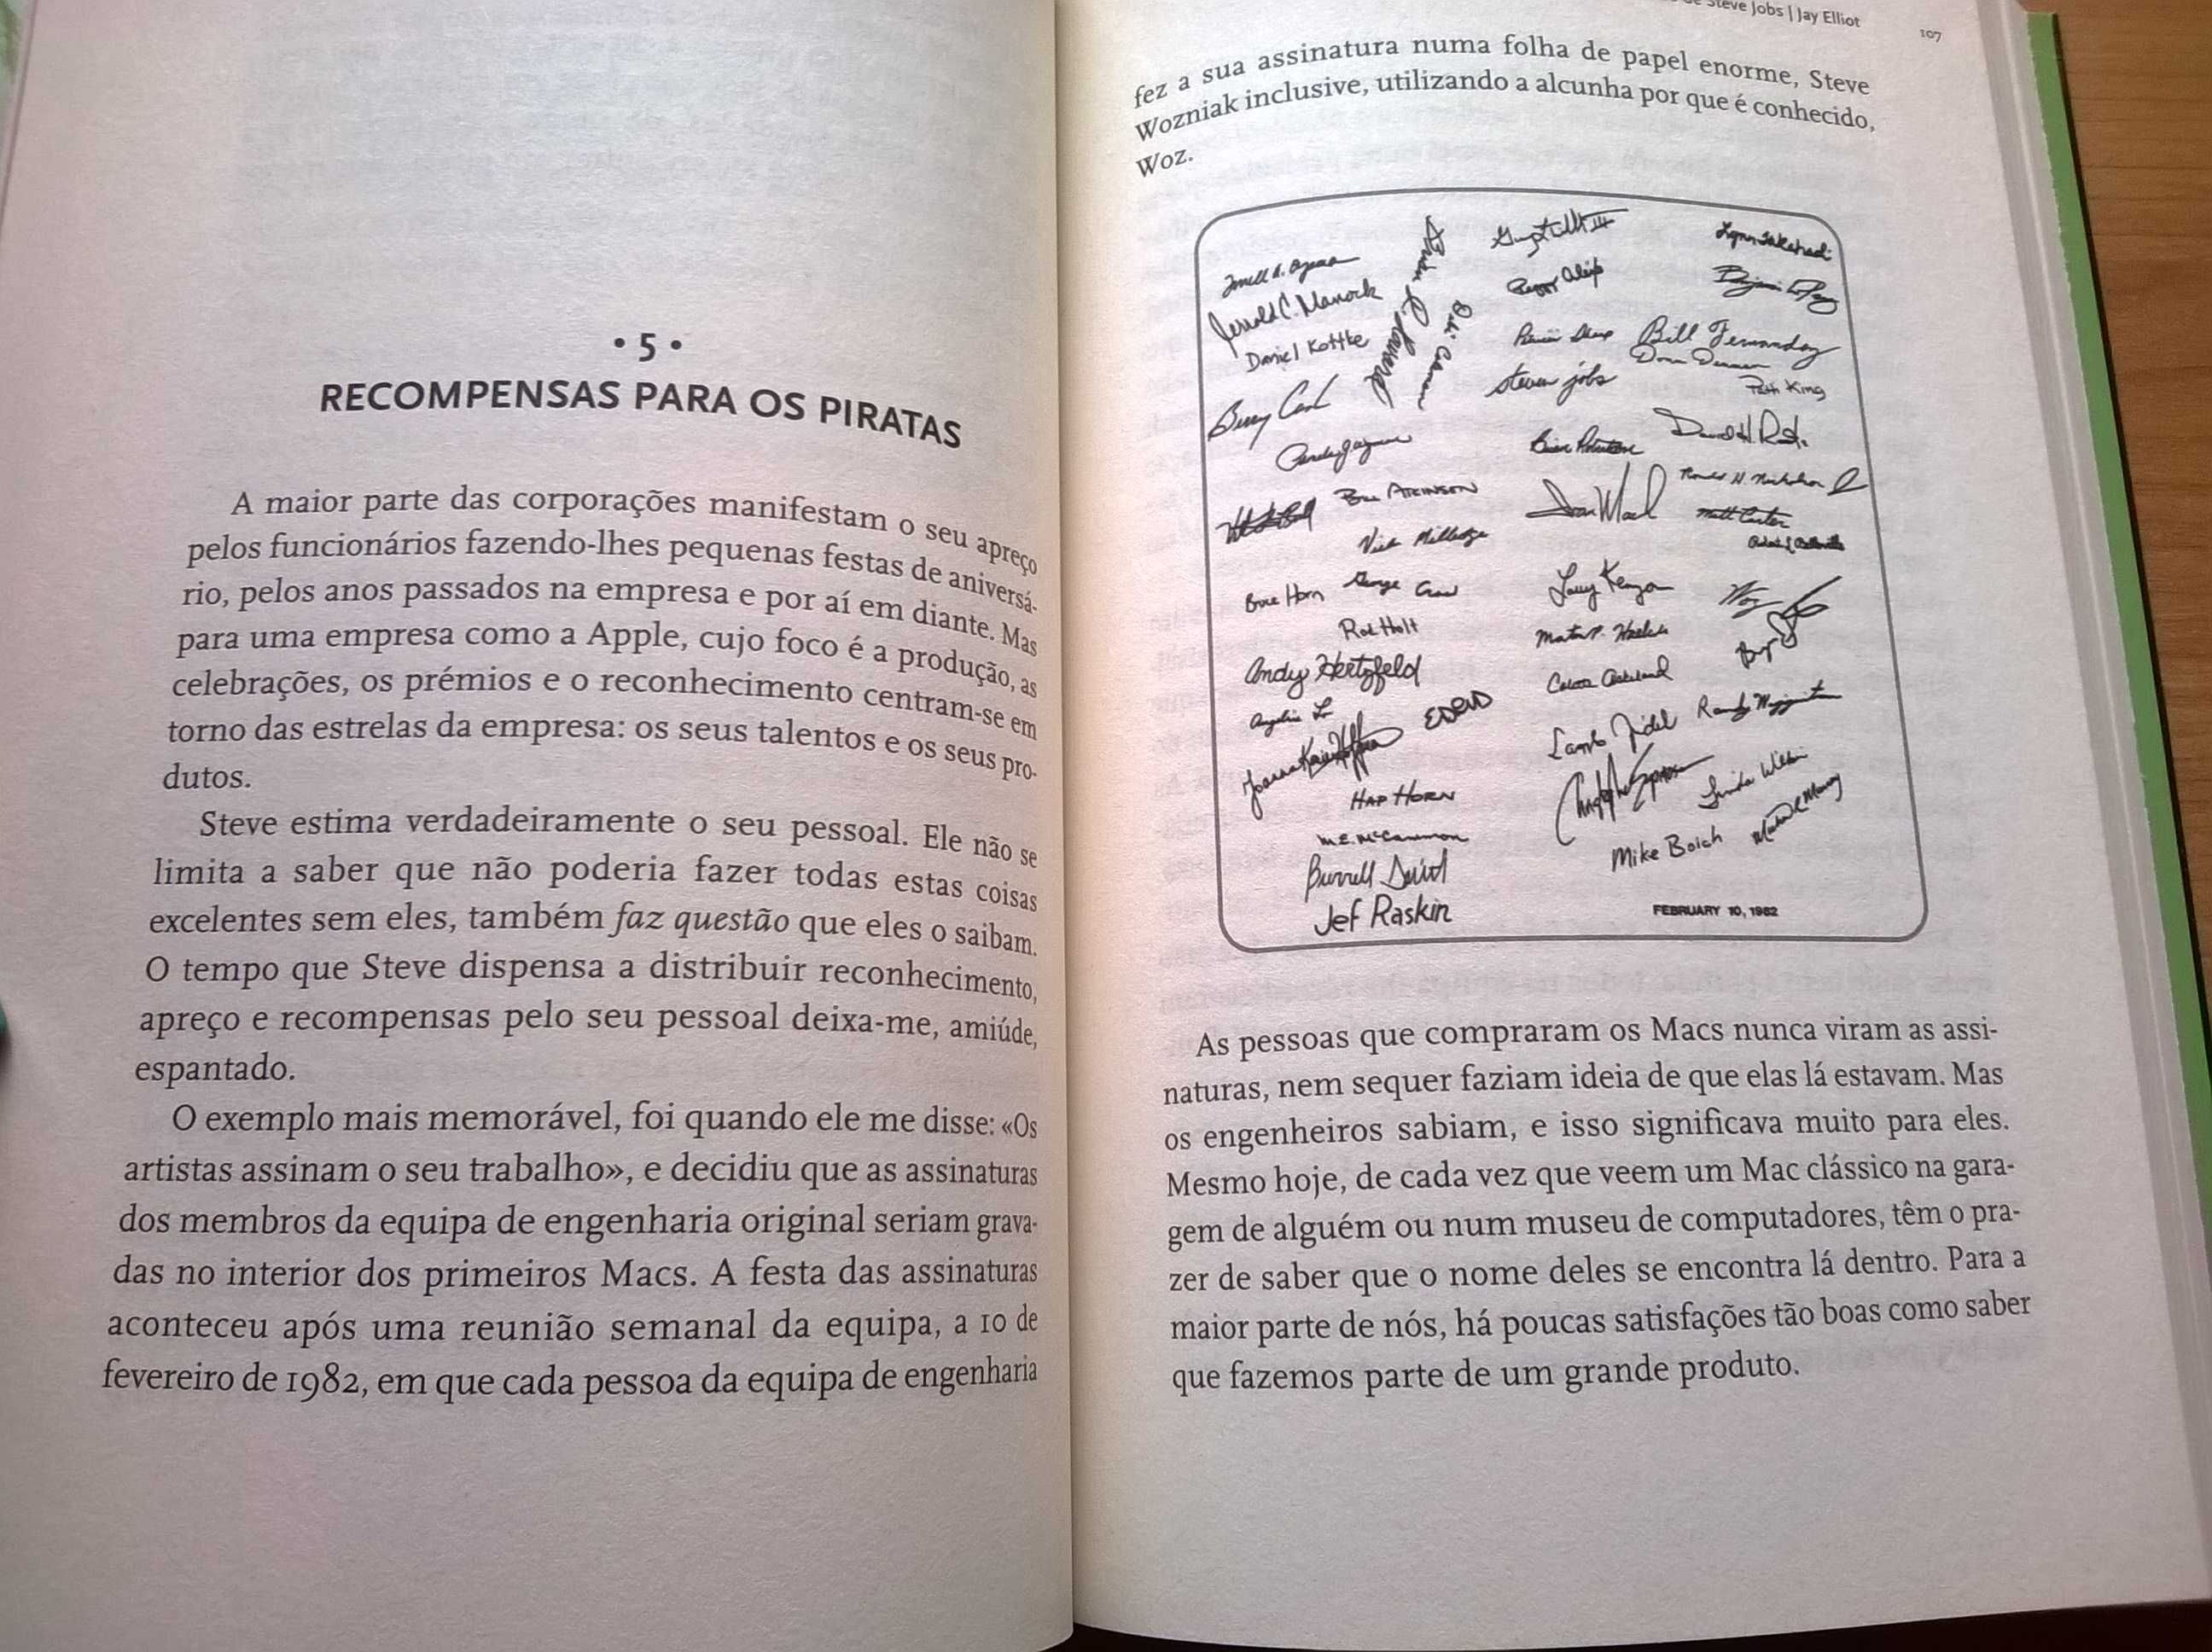 • 5 •
RECOMPENSAS PARA OS PIRATAS
A maior parte das corporações manifestam o seu apreço
pelos funcionários fazendo-lhes pequenas festas de aniversá-
rio, pelos anos passados na empresa e por aí em diante. Mas
para uma empresa como a Apple, cujo foco é a produção, as
celebrações, os prémios e o reconhecimento centram-se em
torno das estrelas da empresa: os seus talentos e os seus pro-
dutos.
Steve estima verdadeiramente o seu pessoal. Ele não se
limita a saber que não poderia fazer todas estas coisas
excelentes sem eles, também faz questão que eles o saibam.
O tempo que Steve dispensa a distribuir reconhecimento,
apreço e recompensas pelo seu pessoal deixa-me, amiúde,
espantado.
O exemplo mais memorável, foi quando ele me disse: «Os
artistas assinam o seu trabalho», e decidiu que as assinaturas
dos membros da equipa de engenharia original seriam grava-
das no interior dos primeiros Macs. A festa das assinaturas
aconteceu após uma reunião semanal da equipa, a 10 de
fevereiro de 1982, em que cada pessoa da equipa de engenharia
Steve Jobs | Jay Elliot
107
fez a sua assinatura numa folha de papel enorme, Steve
Wozniak inclusive, utilizando a alcunha por que é conhecido,
Woz.
Jerrold C. Manock
Daniel Kottke
Bill Fernandez
steven jobs
Patti King
Bill Atkinson
Matt Carter
Bruce Horn
George Crow
Larry Kenyon
Woz
Rod Holt
Andy Hertzfeld
Randy Wigginton
Hap Horn
Linda Wilkin
M.E. McCammon
Mike Boich
Burrell
Jef Raskin
FEBRUARY 10, 1982
As pessoas que compraram os Macs nunca viram as assi-
naturas, nem sequer faziam ideia de que elas lá estavam. Mas
os engenheiros sabiam, e isso significava muito para eles.
Mesmo hoje, de cada vez que veem um Mac clássico na gara-
gem de alguém ou num museu de computadores, têm o pra-
zer de saber que o nome deles se encontra lá dentro. Para a
maior parte de nós, há poucas satisfações tão boas como saber
que fazemos parte de um grande produto.